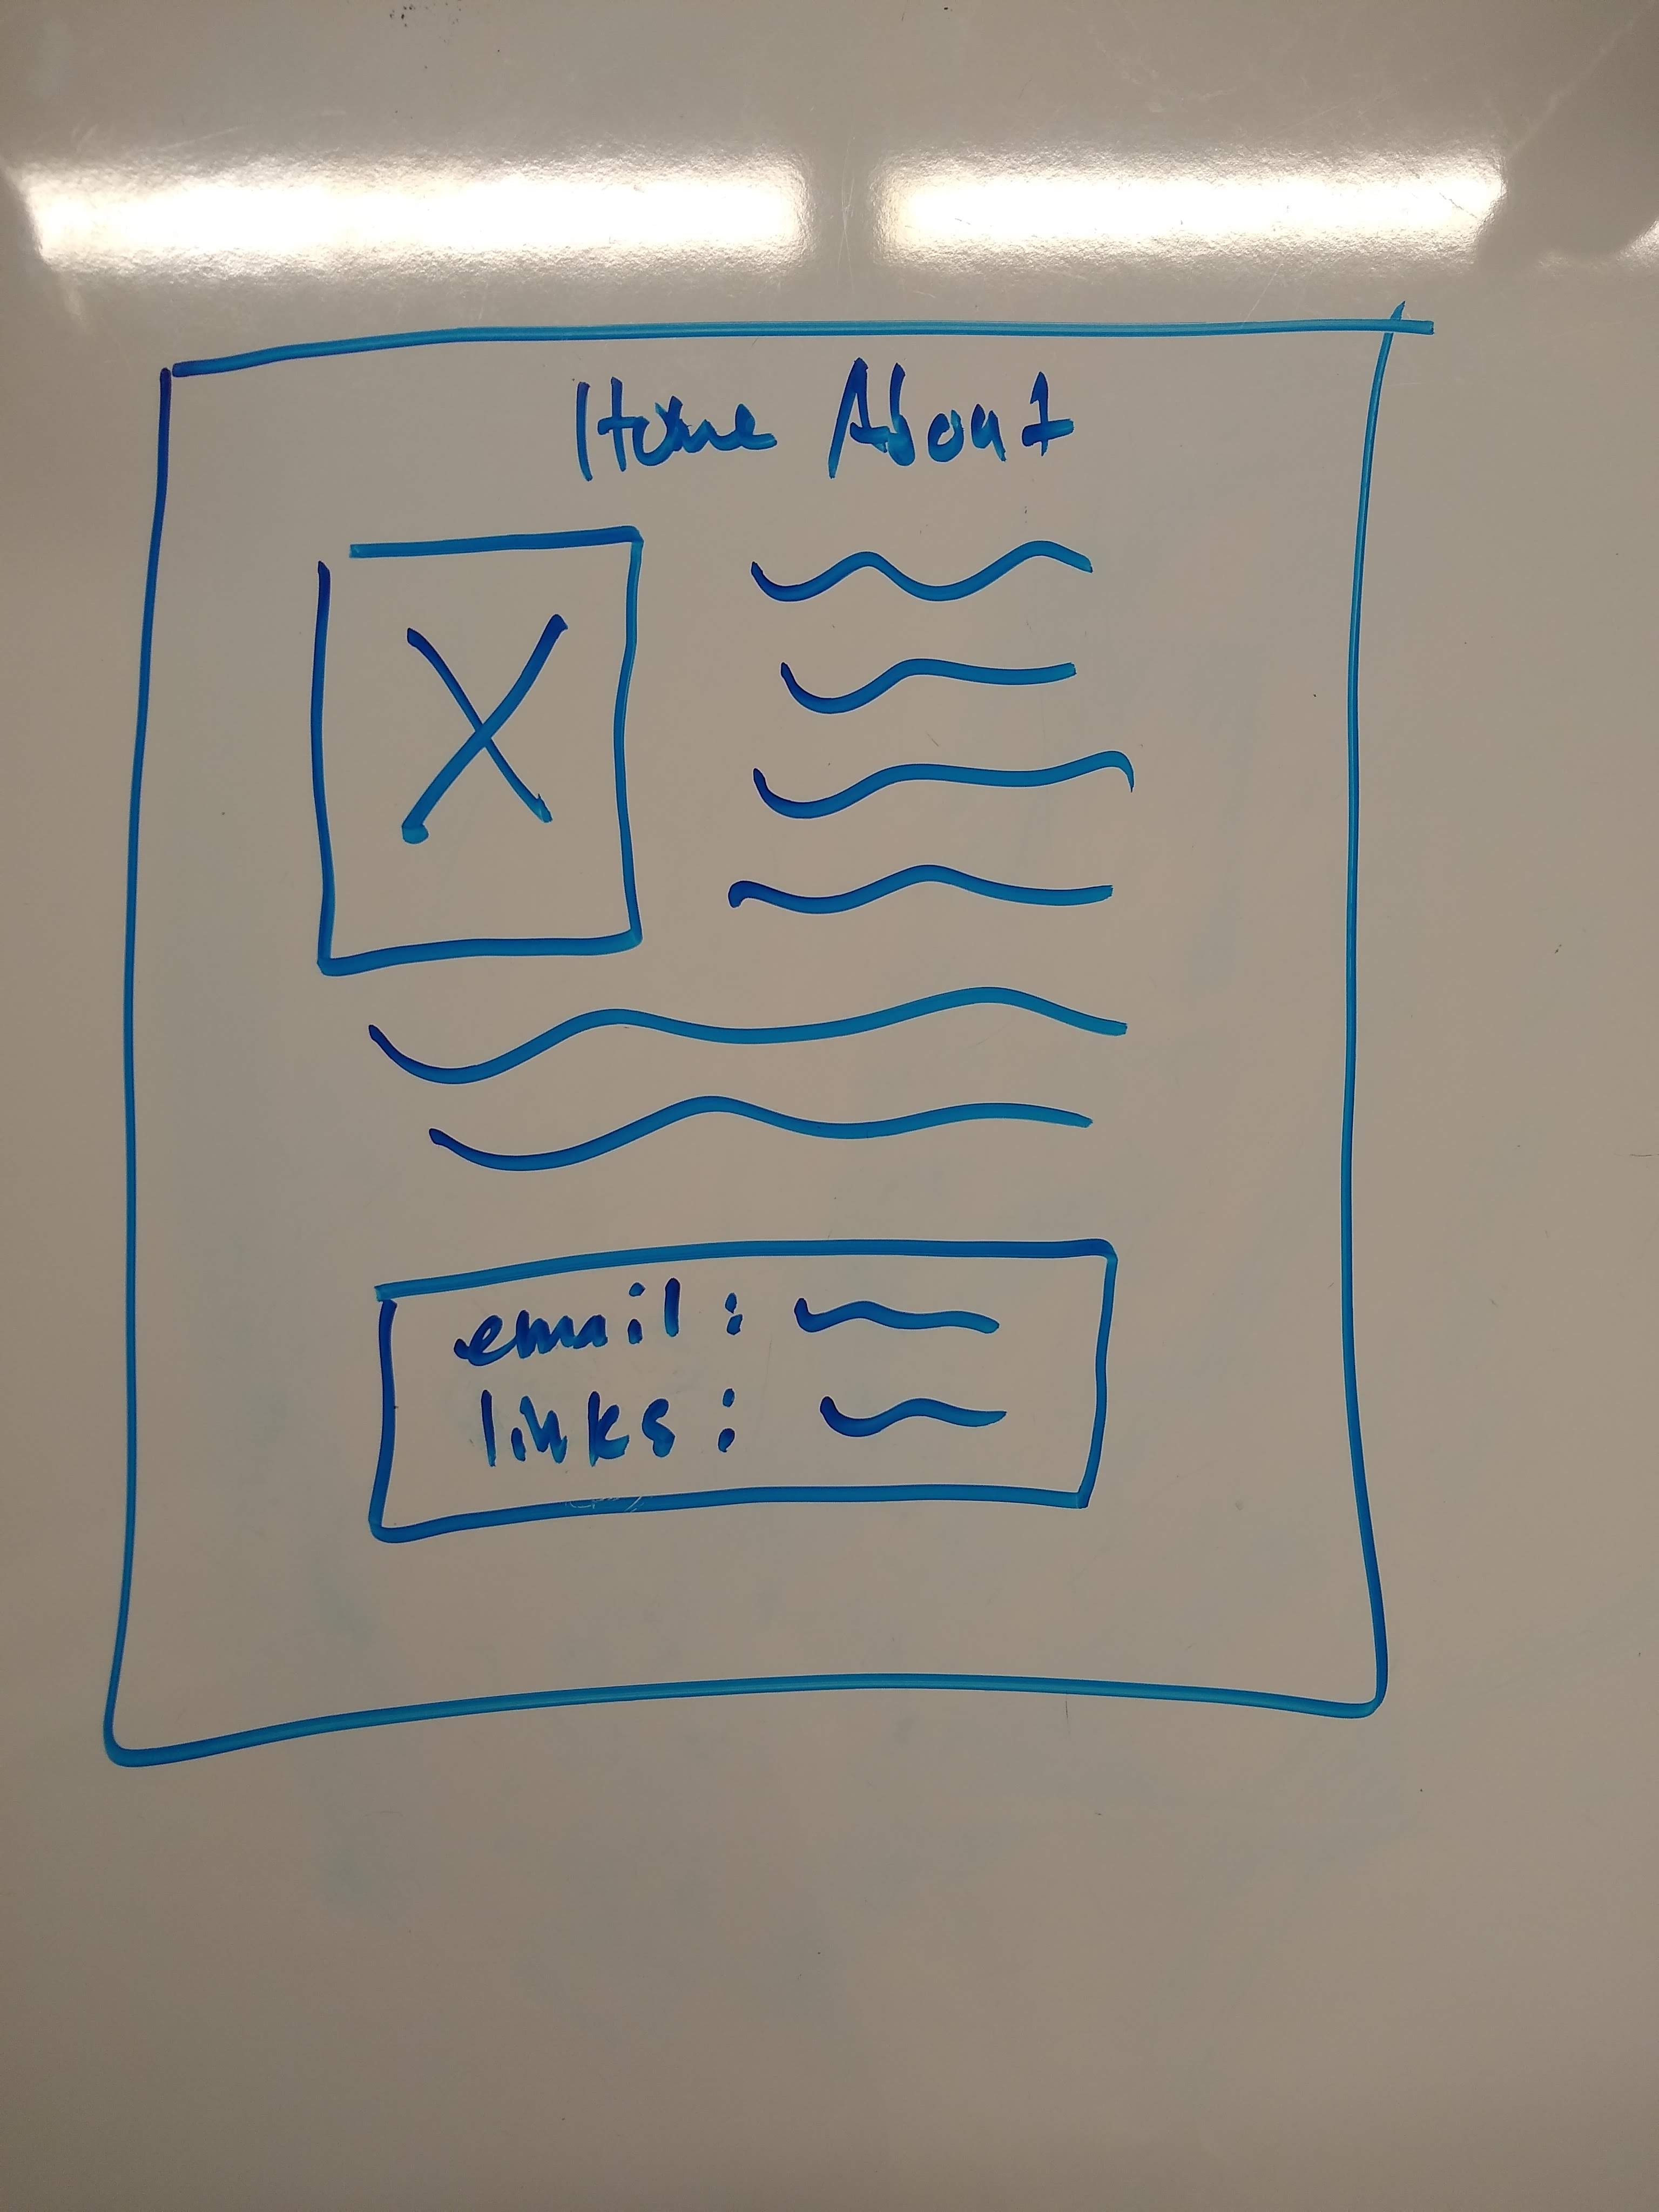 Home About
email:
links: